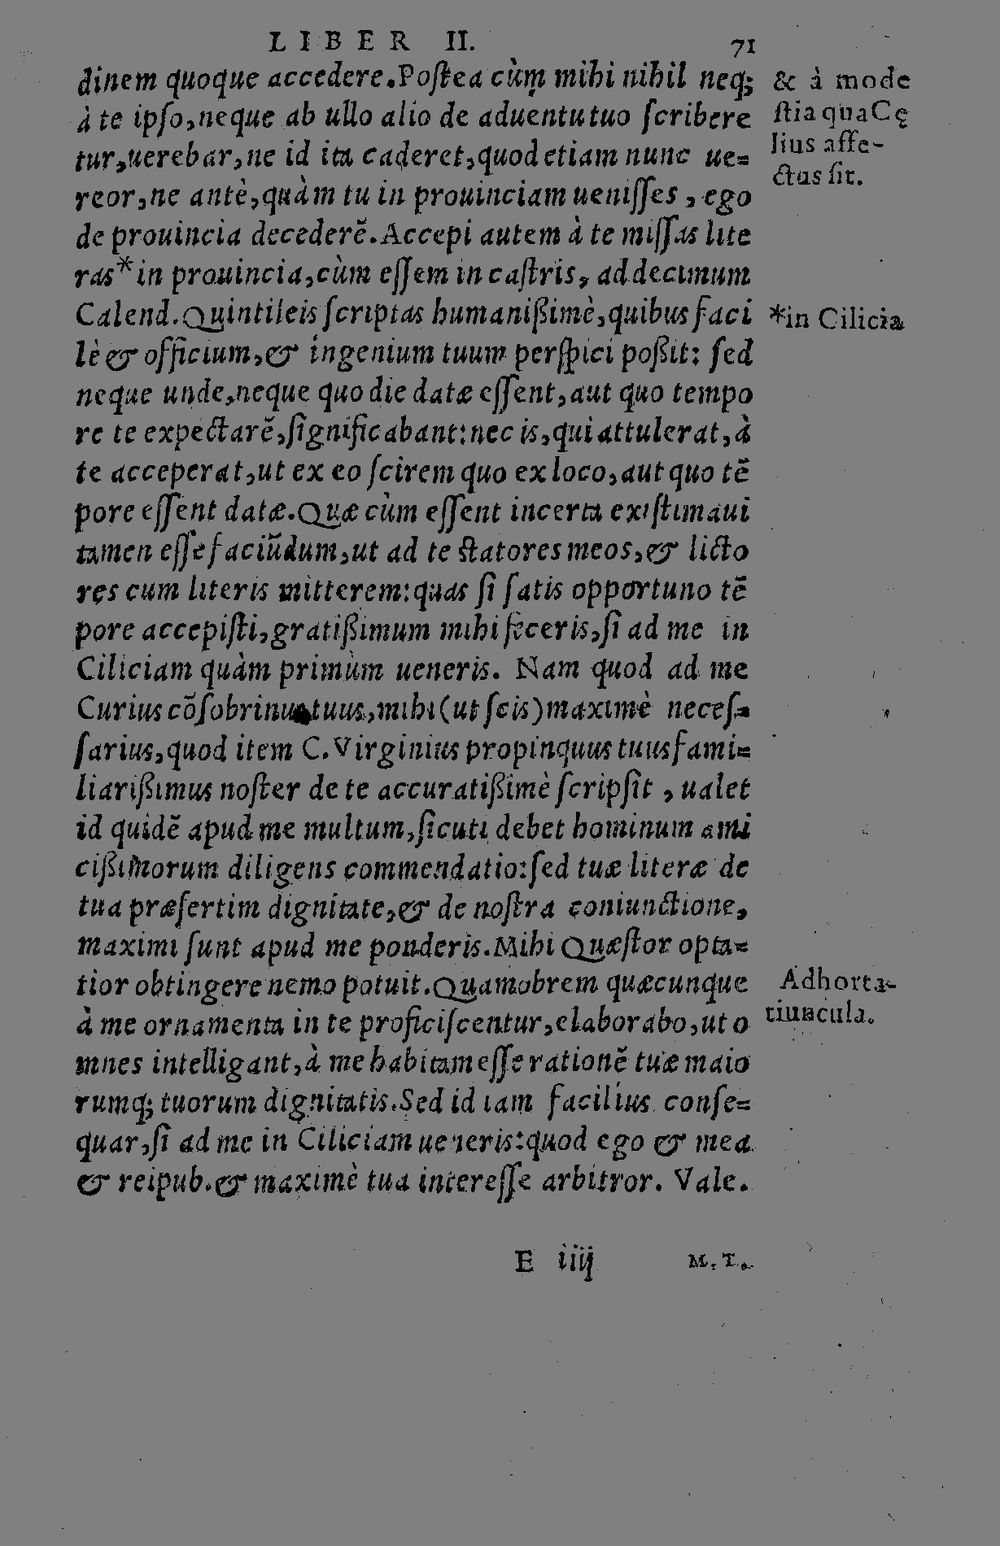 LIBER II. 71
dinem quoque accedere. Postea cùm mihi nihil neq;
à te ipso, neque ab ullo alio de aduentu tuo scribere
tur, uerebar, ne id ita caderet, quod etiam nunc ue=
reor, ne antè, quàm tu in prouinciam uenisses, ego
de prouincia decederẽ. Accepi autem à te missas lite
ras* in prouincia, cùm essem in castris, ad decimum
Calend. Quintileis scriptas humanißimè, quibus faci
lè & officium, & ingenium tuum perspici poßit: sed
neque unde, neque quo die datæ essent, aut quo tempo
re te expectarẽ, significabant: nec is, qui attulerat, à
te acceperat, ut ex eo scirem quo ex loco, aut quo tẽ
pore essent datæ. Quæ cùm essent incerta existimaui
tamen esse faciũdum, ut ad te statores meos, & licto
res cum literis mitterem: quas si satis opportuno tẽ
pore accepisti, gratißimum mihi feceris, si ad me in
Ciliciam quàm primùm ueneris. Nam quod ad me
Curius cõsobrinus tuus, mihi (ut scis) maximè neces=
sarius, quod item C. Virginius propinquus tuus fami=
liarißimus noster de te accuratißimè scripsit, ualet
id quidẽ apud me multum, sicuti debet hominum ami
cißimorum diligens commendatio: sed tuæ literæ de
tua præsertim dignitate, & de nostra coniunctione,
maximi sunt apud me ponderis. Mihi Quæstor opta=
tior obtingere nemo potuit. Quamobrem quæcunque
à me ornamenta in te proficiscentur, elaborabo, ut o
mnes intelligant, à me habitam esse rationẽ tuæ maio
rumq; tuorum dignitatis. Sed id iam facilius conse=
quar, si ad me in Ciliciam ueneris: quod ego & mea
& reipub. & maximè tua interesse arbitror. Vale.
E iiij M. T.
& à mode
stia qua Cę
lius affe-
ctus sit.
*in Cilicia
Adhorta-
tiuncula.